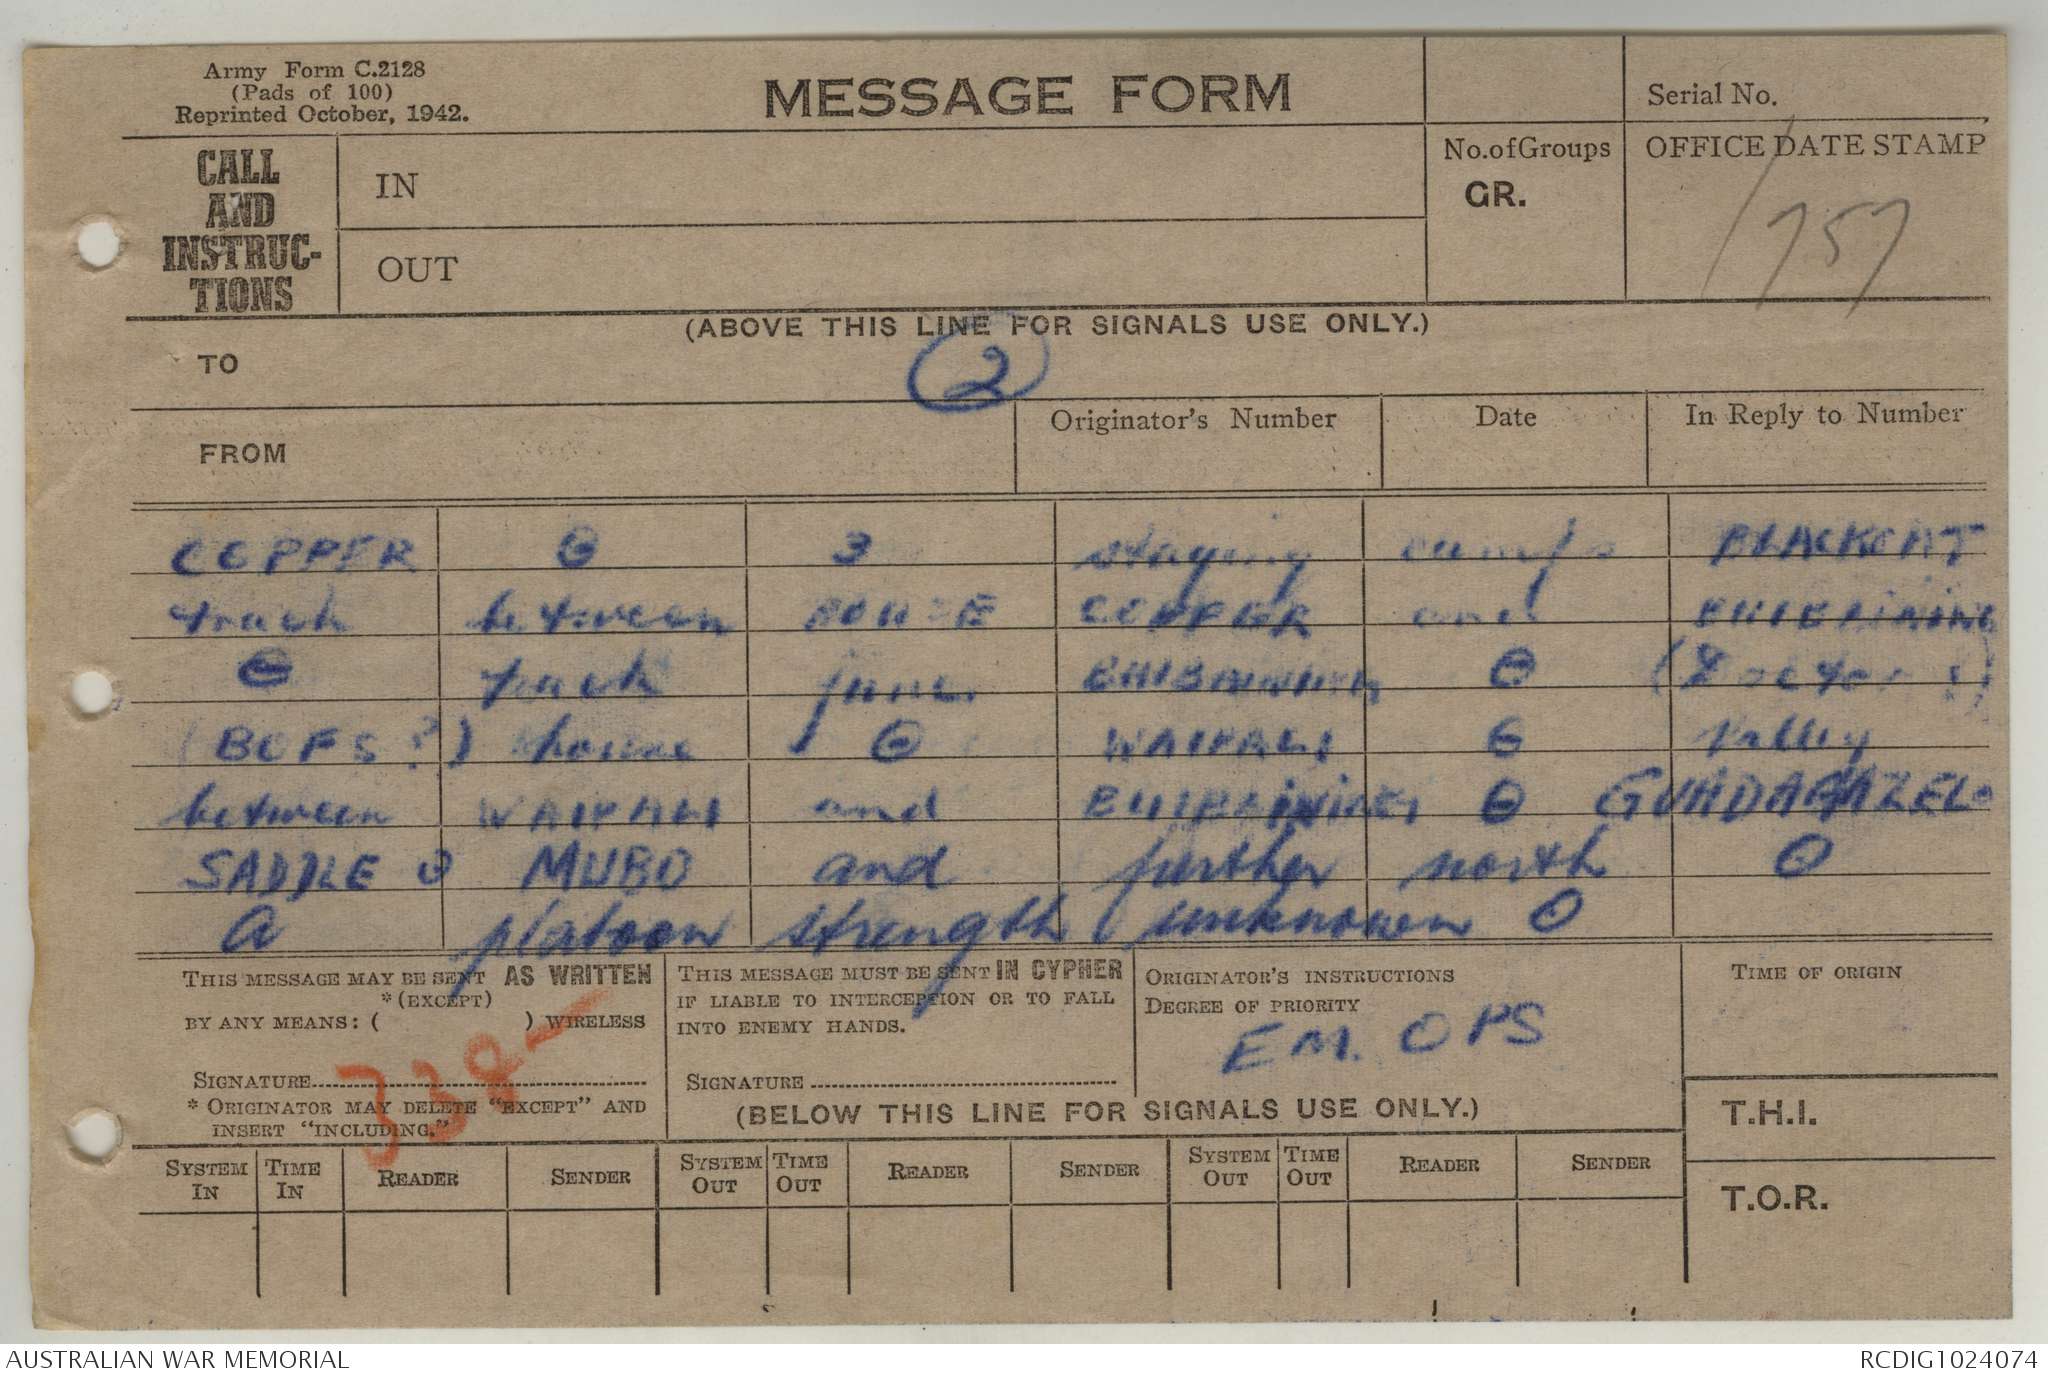 Army Form C.2128
(Pads of 100)
Reprinted October, 1942.
MESSAGE FORM
Serial No.
CALL AND INSTRUC- TIONS
IN
OUT
No. of Groups
GR.
OFFICE DATE STAMP
(ABOVE THIS LINE FOR SIGNALS USE ONLY.)
TO
2
FROM
Originator's Number
Date
In Reply to Number
COPPER ⊖ 3 staging camps BLACKCAT
track between COPPER and
⊖ track junc. ⊖ (Doctor?)
(BOFS?) house ⊖ WAIPALI ⊖ Valley
between WAIPALI and ⊖ GUADAGAZEL
SADDLE ⊖ MUBO and further north ⊖
A platoon strength unknown ⊖
THIS MESSAGE MAY BE SENT AS WRITTEN
*(EXCEPT)
BY ANY MEANS: ( ) WIRELESS
SIGNATURE
* ORIGINATOR MAY DELETE "EXCEPT" AND
INSERT "INCLUDING."
338
THIS MESSAGE MUST BE SENT IN CYPHER
IF LIABLE TO INTERCEPTION OR TO FALL
INTO ENEMY HANDS.
SIGNATURE
ORIGINATOR'S INSTRUCTIONS
DEGREE OF PRIORITY
EM. OPS
TIME OF ORIGIN
(BELOW THIS LINE FOR SIGNALS USE ONLY.)
T.H.I.
SYSTEM IN TIME IN READER SENDER SYSTEM OUT TIME OUT READER SENDER SYSTEM OUT TIME OUT READER SENDER
T.O.R.
AUSTRALIAN WAR MEMORIAL
RCDIG1024074